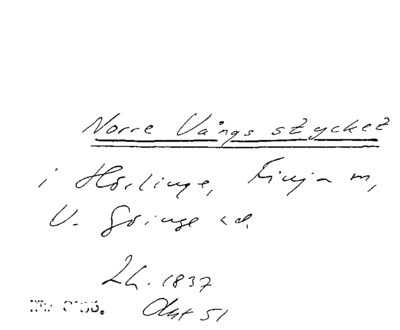 Norre Vångs stycket
i Hörlinge, Finja m,
V. Göinge hd.
Lh. 1837
Akt 51